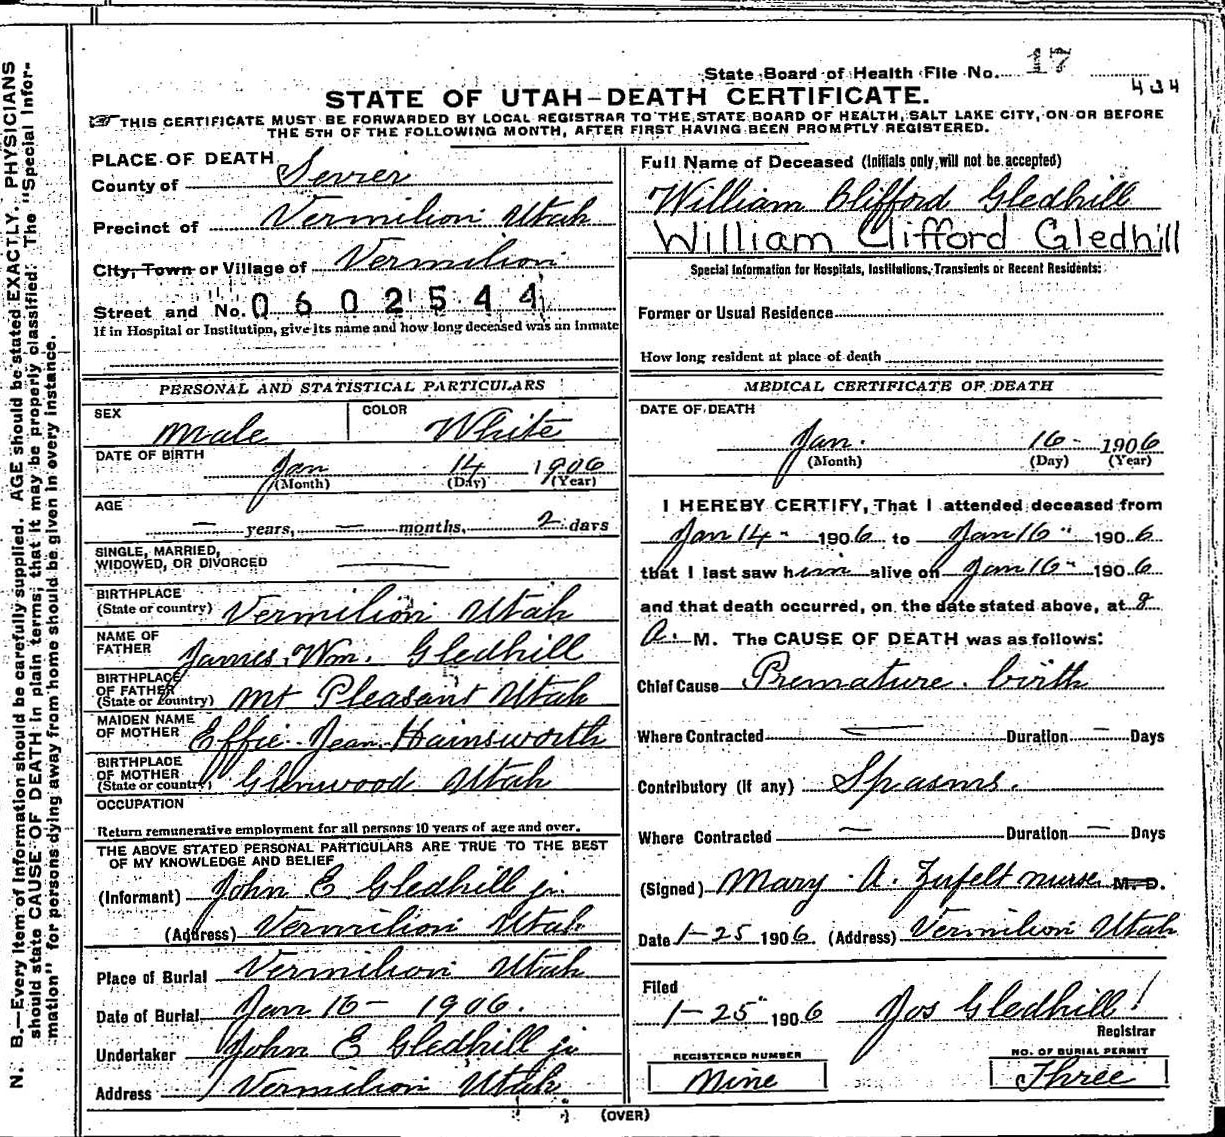 State Board of Health File No. 17
434
STATE OF UTAH-DEATH CERTIFICATE.
THIS CERTIFICATE MUST BE FORWARDED BY LOCAL REGISTRAR TO THE STATE BOARD OF HEALTH, SALT LAKE CITY, ON OR BEFORE
THE 5TH OF THE FOLLOWING MONTH, AFTER FIRST HAVING BEEN PROMPTLY REGISTERED.
PLACE OF DEATH
County of Sevier
Precinct of Vermilion Utah
City, Town or Village of Vermilion
Street and No. 0602544
If in Hospital or Institution, give its name and how long deceased was an inmate
PERSONAL AND STATISTICAL PARTICULARS
SEX Male COLOR White
DATE OF BIRTH Jan 14 1906
(Month) (Day) (Year)
AGE
— years, — months, 2 days
SINGLE, MARRIED,
WIDOWED, OR DIVORCED —
BIRTHPLACE
(State or country) Vermilion Utah
NAME OF
FATHER James Wm. Gledhill
BIRTHPLACE
OF FATHER
(State or country) Mt Pleasant Utah
MAIDEN NAME
OF MOTHER Effie Jean Hainsworth
BIRTHPLACE
OF MOTHER
(State or country) Glenwood Utah
OCCUPATION
Return remunerative employment for all persons 10 years of age and over.
THE ABOVE STATED PERSONAL PARTICULARS ARE TRUE TO THE BEST
OF MY KNOWLEDGE AND BELIEF
(Informant) John E Gledhill jr.
(Address) Vermilion Utah
Place of Burial Vermilion Utah
Date of Burial Jan 16 - 1906.
Undertaker John E Gledhill jr
Address Vermilion Utah
Full Name of Deceased (Initials only will not be accepted)
William Clifford Gledhill
William Clifford Gledhill
Special Information for Hospitals, Institutions, Transients or Recent Residents:
Former or Usual Residence
How long resident at place of death
MEDICAL CERTIFICATE OF DEATH
DATE OF DEATH
Jan. 16 - 1906
(Month) (Day) (Year)
I HEREBY CERTIFY, That I attended deceased from
Jan 14 - 1906 to Jan 16" 1906
that I last saw him alive on Jan 16" 1906
and that death occurred, on the date stated above, at 8
A. M. The CAUSE OF DEATH was as follows:
Chief Cause Premature birth
Where Contracted — Duration — Days
Contributory (if any) Spasms.
Where Contracted — Duration — Days
(Signed) Mary A. Zufelt nurse M.D.
Date 1-25 1906. (Address) Vermilion Utah
Filed
1-25" 1906 Jos Gledhill
Registrar
REGISTERED NUMBER
Nine
NO. OF BURIAL PERMIT
Three
(OVER)
N. B.—Every item of information should be carefully supplied. AGE should be stated EXACTLY. PHYSICIANS
should state CAUSE OF DEATH in plain terms, that it may be properly classified. The "Special Infor-
mation" for persons dying away from home should be given in every instance.